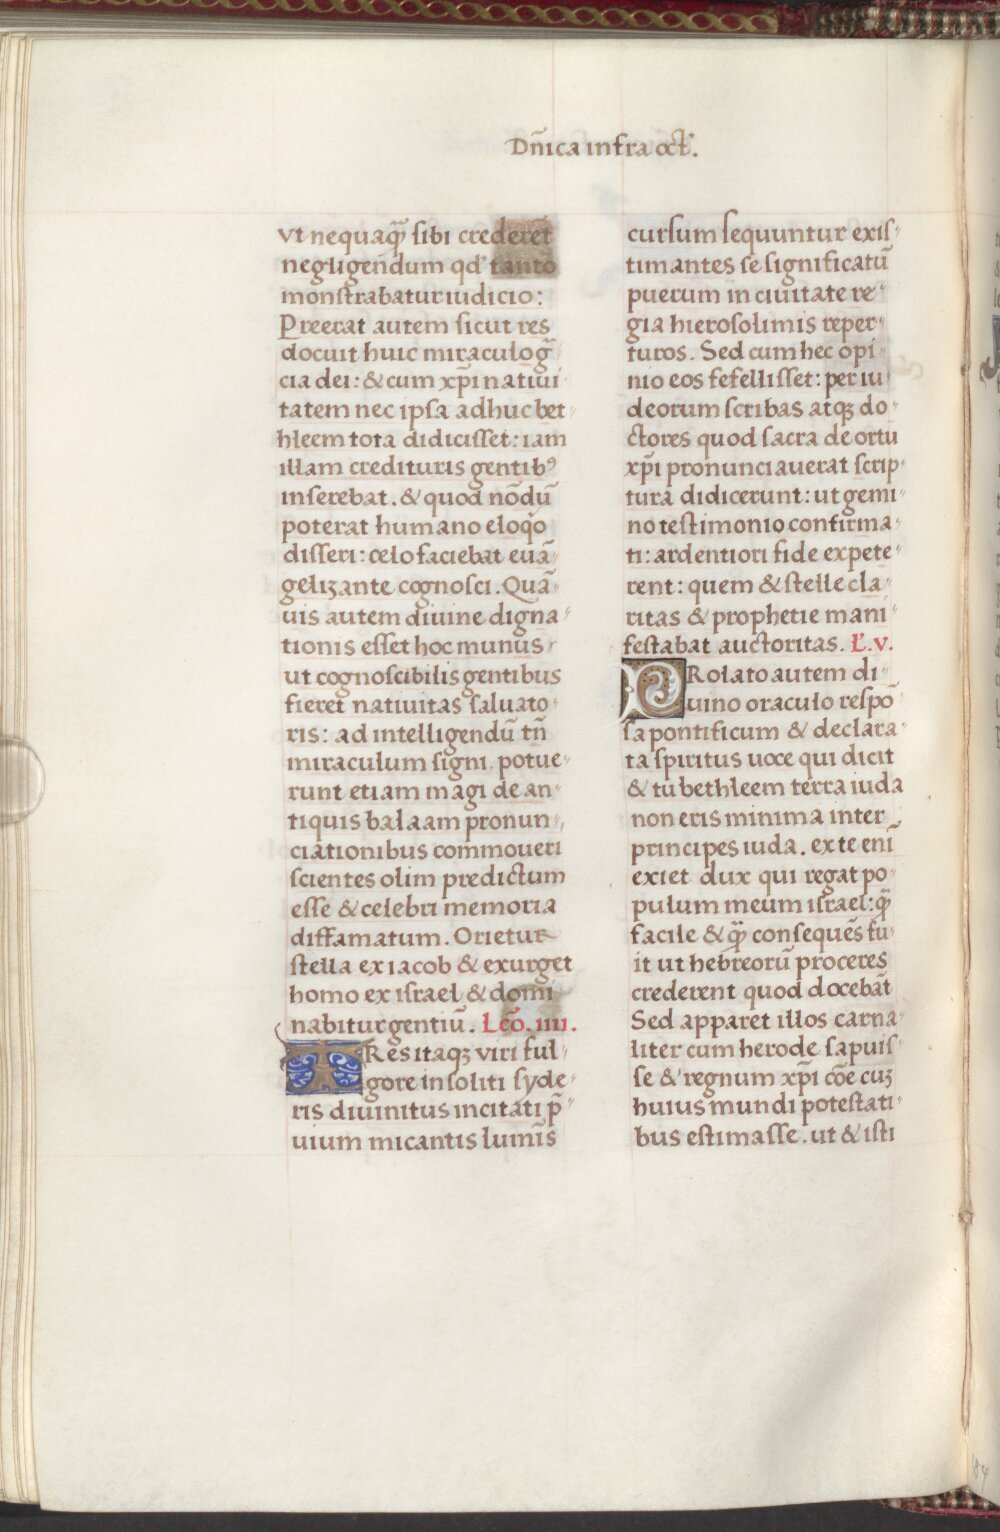 Dn̄ica infra oct̄.
vt nequaq̄ sibi crederet
negligendum qd' tanto
monstrabatur iudicio:
Preerat autem sicut res
docuit huic miraculo gr̄a
cia dei: & cum xp̄i natiui
tatem nec ipsa adhuc bet
hleem tota didicisset: iam
illam credituris gentibꝰ
inserebat. & quod nōdū
poterat humano eloq̊o
disseri: celo faciebat euā
gelizante cognosci. Quā
uis autem diuine digna
tionis esset hoc munus
ut cognoscibilis gentibus
fieret natiuitas saluato
ris: ad intelligendū tn̄
miraculum signi, potue
runt etiam magi de an
tiquis balaam pronun
ciationibus commoueri
scientes olim predictum
esse & celebri memoria
diffamatum. Orietur
stella ex iacob & exurget
homo ex israel & domi
nabitur gentiū. Lc̄o. IIII.
TRes itaqꝫ viri ful
gore insoliti syde
ris diuinitus incitati p̄
uium micantis lumīs
cursum sequuntur exis
timantes se significatū
puerum in ciuitate re
gia hierosolimis reper
turos. Sed cum hec opi
nio eos fefellisset: per iu
deorum scribas atqꝫ do
ctores quod sacra de ortu
xp̄i pronunciauerat scrip
tura didicerunt: ut gemi
no testimonio confirma
ti: ardentiori fide expete
rent: quem & stelle cla
ritas & prophetie mani
festabat auctoritas. L'. v.
PRolato autem di
uino oraculo respō
sa pontificum & declara
ta spiritus uoce qui dicit
& tu bethleem terra iuda
non eris minima inter
principes iuda. ex te enī
exiet dux qui regat po
pulum meum israel: q̄
facile & q̄ consequēs fu
it ut hebreorū proceres
crederent quod docebāt
Sed apparet illos carna
liter cum herode sapuis
se & regnum xp̄i cōe cuꝫ
huius mundi potestati
bus estimasse. ut & isti